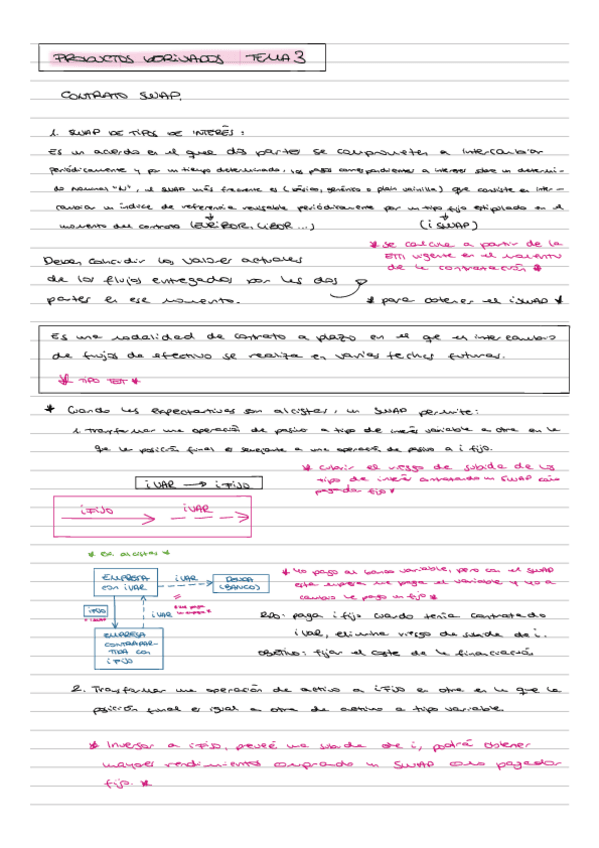 PRODUCTOS DERIVADOS TEMA 3
CONTRATO SWAP.
1. SWAP DE TIPOS DE INTERÉS:
Es un acuerdo en el que dos partes se comprometen a intercambiar
periódicamente y por un tiempo determinado, los pagos correspondientes a intereses sobre un determina-
do nominal "N", el SWAP más frecuente es (básico, genérico o plain vainilla) que consiste en inter-
cambiar un índice de referencia revisable periódicamente por un tipo fijo estipulado en el
momento del contrato (EURIBOR, LIBOR...) (i SWAP)
* se calcula a partir de la
ETTI vigente en el momento
de la contratación *
Deben coincidir los valores actuales
de los flujos entregados por las dos
partes en ese momento. * para obtener el i SWAP *
Es una modalidad de contrato a plazo en el que el intercambio
de flujos de efectivo se realiza en varias fechas futuras.
* TIPO TEST *
* Cuando las expectativas son alcistas, un SWAP permite:
1. Transformar una operación de pasivo a tipo de interés variable a otra en la
que la posición final es semejante a una operación de pasivo a i fijo.
* cubrir el riesgo de subida de los
tipo de interés contratando un SWAP como
pagador fijo *
i VAR → i FIJO
i FIJO i VAR
* Ex alcistas *
EMPRESA
con i VAR
i VAR
DEUDA
(BANCO)
i FIJO
i VAR
EMPRESA
CONTRAPAR-
TIDA con
i FIJO
* Yo pago al banco variable, pero con el SWAP
esta empresa me paga el variable y yo a
cambio le pago un fijo *
RDO: paga i fijo cuando tenía contratado
i VAR, elimina riesgo de subida de i.
OBJETIVO: fijar el coste de la financiación
2. Transformar una operación de activo a i FIJO en otra en la que la
posición final es igual a otra de activo a tipo variable.
* Inversor a i FIJO, prevé una subida de i, podrá obtener
mayores rendimientos comprando un SWAP como pagador
fijo. *